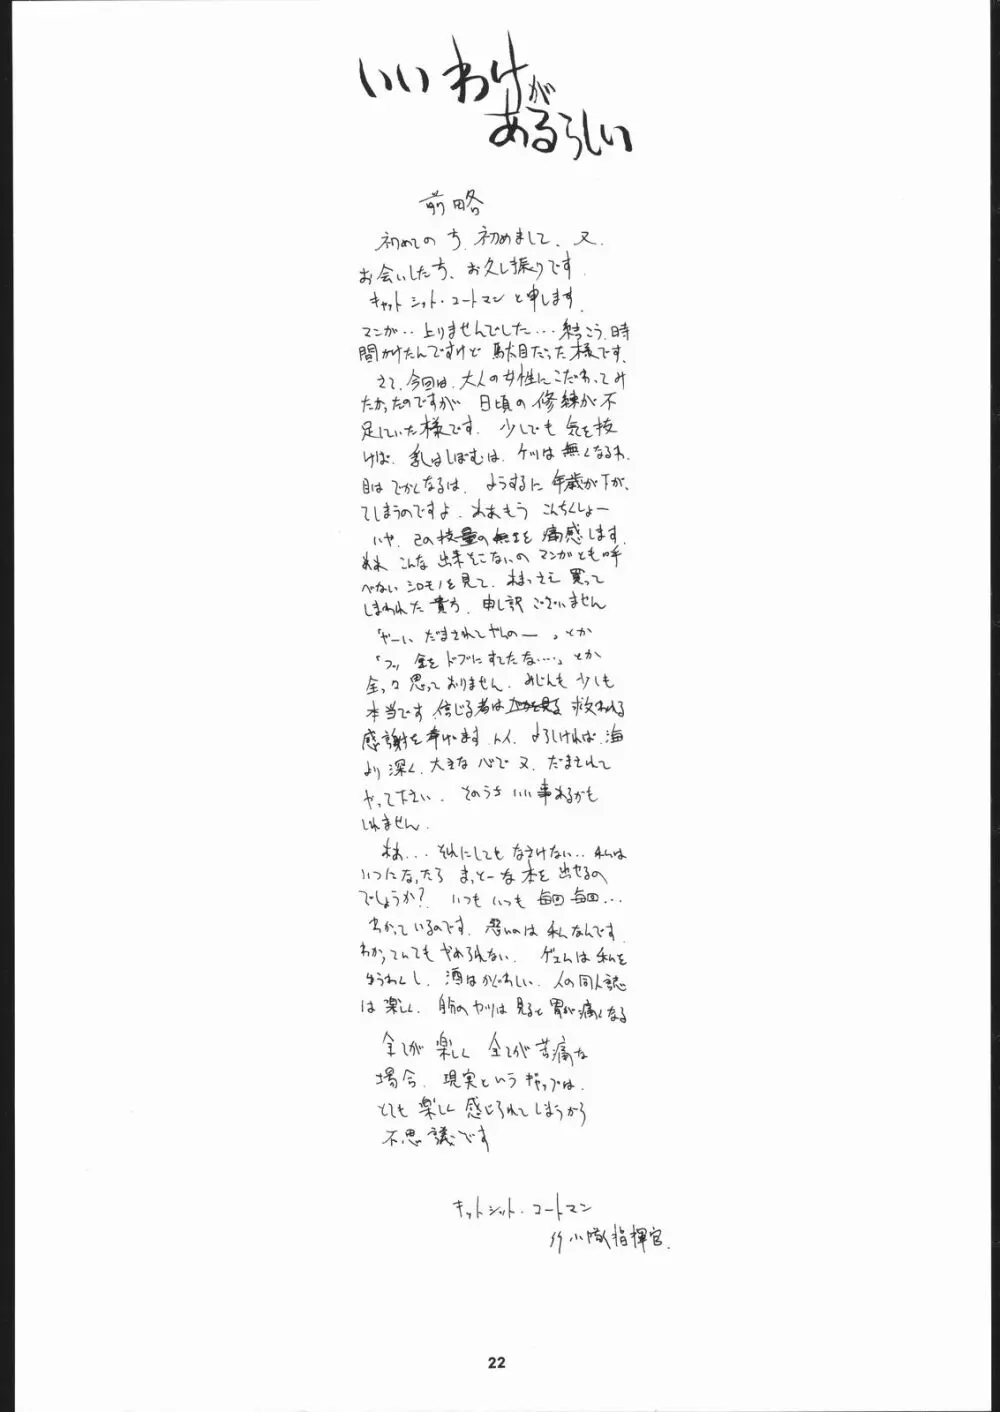 いいわけが
あるらしい
前略
初めての方、初めまして、又、
お会いした方、お久し振りです。
キャットシット・コートマンと申します。
マンガ‥上りませんでした…結こう、時
間かけたんですけど駄目だった様です。
さて、今回は、大人の女性にこだわってみ
たかったのですが日頃の修練が不
足していた様です。少しでも気を抜
けば、乳はしぼむは、ケツは無くなるわ、
目はでかくなるは、ようするに年歳が下が
てしまうのですよ。ああもうこんちくしょー
いや、己の技量の無さを痛感します。
こんな出来そこないのマンガとも呼
べないシロモノを見て、買って
しまわれた貴方、申し訳ございません
「やーいだまされてやんのー」とか
「フッ金をドブにすてたな…」とか
全っ々思っておりません。みじんも少しも
本当です。信じる者は救われる
感謝を捧げます。よろしければ、海
より深く、大きな心で又、だまされて
やって下さい。そのうちいい事あるかも
しれません。
まあ…それにしてもなさけない‥私は
いつになったらまっとーな本を出せるの
でしょうか?いつもいつも毎回毎回…
わかっているのです。悪いのは私なんです。
わかってしてもやめられない。ゲェムは私を
ゆうわくし、酒はかぐわしい、人の同人誌
は楽しく、自分のヤツは見ると胃が痛くなる
全てが楽しく全てが苦痛な
場合、現実というギャップは、
とても楽しく感じられてしまうから
不思議です
キャットシット・コートマン
小隊指揮官.
22